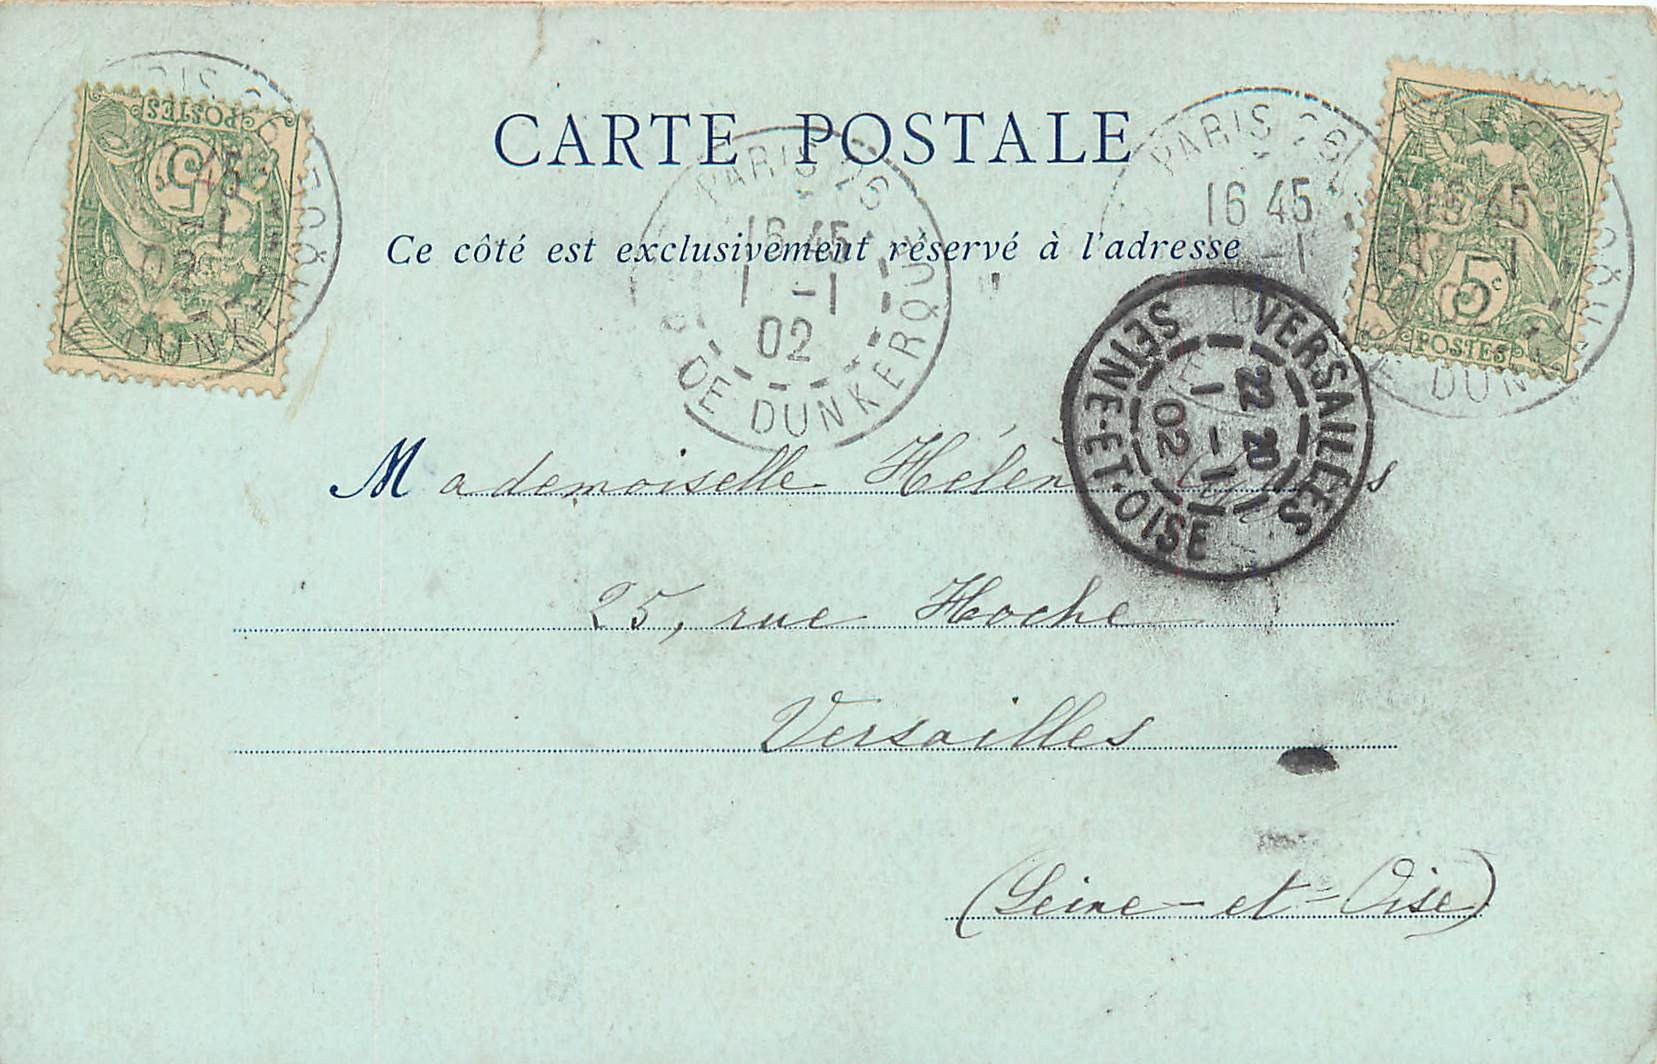 CARTE POSTALE
Ce côté est exclusivement réservé à l'adresse
POSTES
5
02
DUNK
PARIS 26
16 45
1 -1
02
DE DUNKERQUE
PARIS 26
16 45
-1
16 45
5c
POSTES
DUN
VERSAILLES
22 20
1 -1
02
SEINE-ET-OISE
Mademoiselle Hélène
25, rue Hoche
Versailles
(Seine-et-Oise)